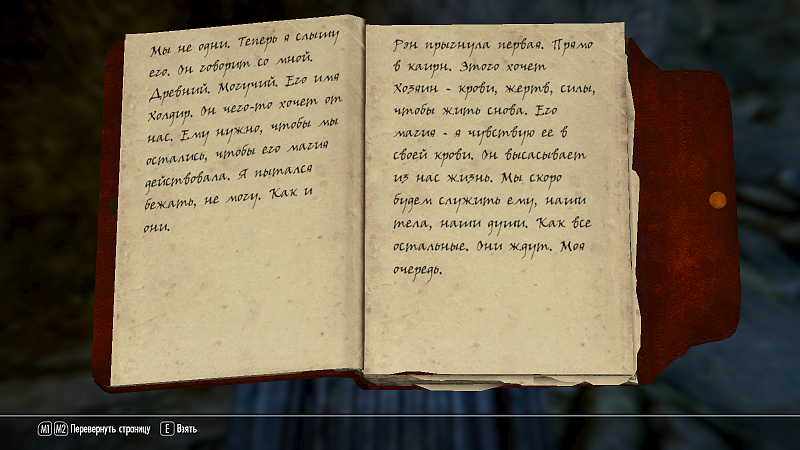 Мы не одни. Теперь я слышу
его. Он говорит со мной.
Древний. Могучий. Его имя
Холдир. Он чего-то хочет от
нас. Ему нужно, чтобы мы
остались, чтобы его магия
действовала. Я пытался
бежать, не могу. Как и
они.
Рэн прыгнула первая. Прямо
в каирн. Этого хочет
Хозяин - крови, жертв, силы,
чтобы жить снова. Его
магия - я чувствую ее в
своей крови. Он высасывает
из нас жизнь. Мы скоро
будем служить ему, наши
тела, наши души. Как все
остальные. Они ждут. Моя
очередь.
M1 M2 Перевернуть страницу E Взять